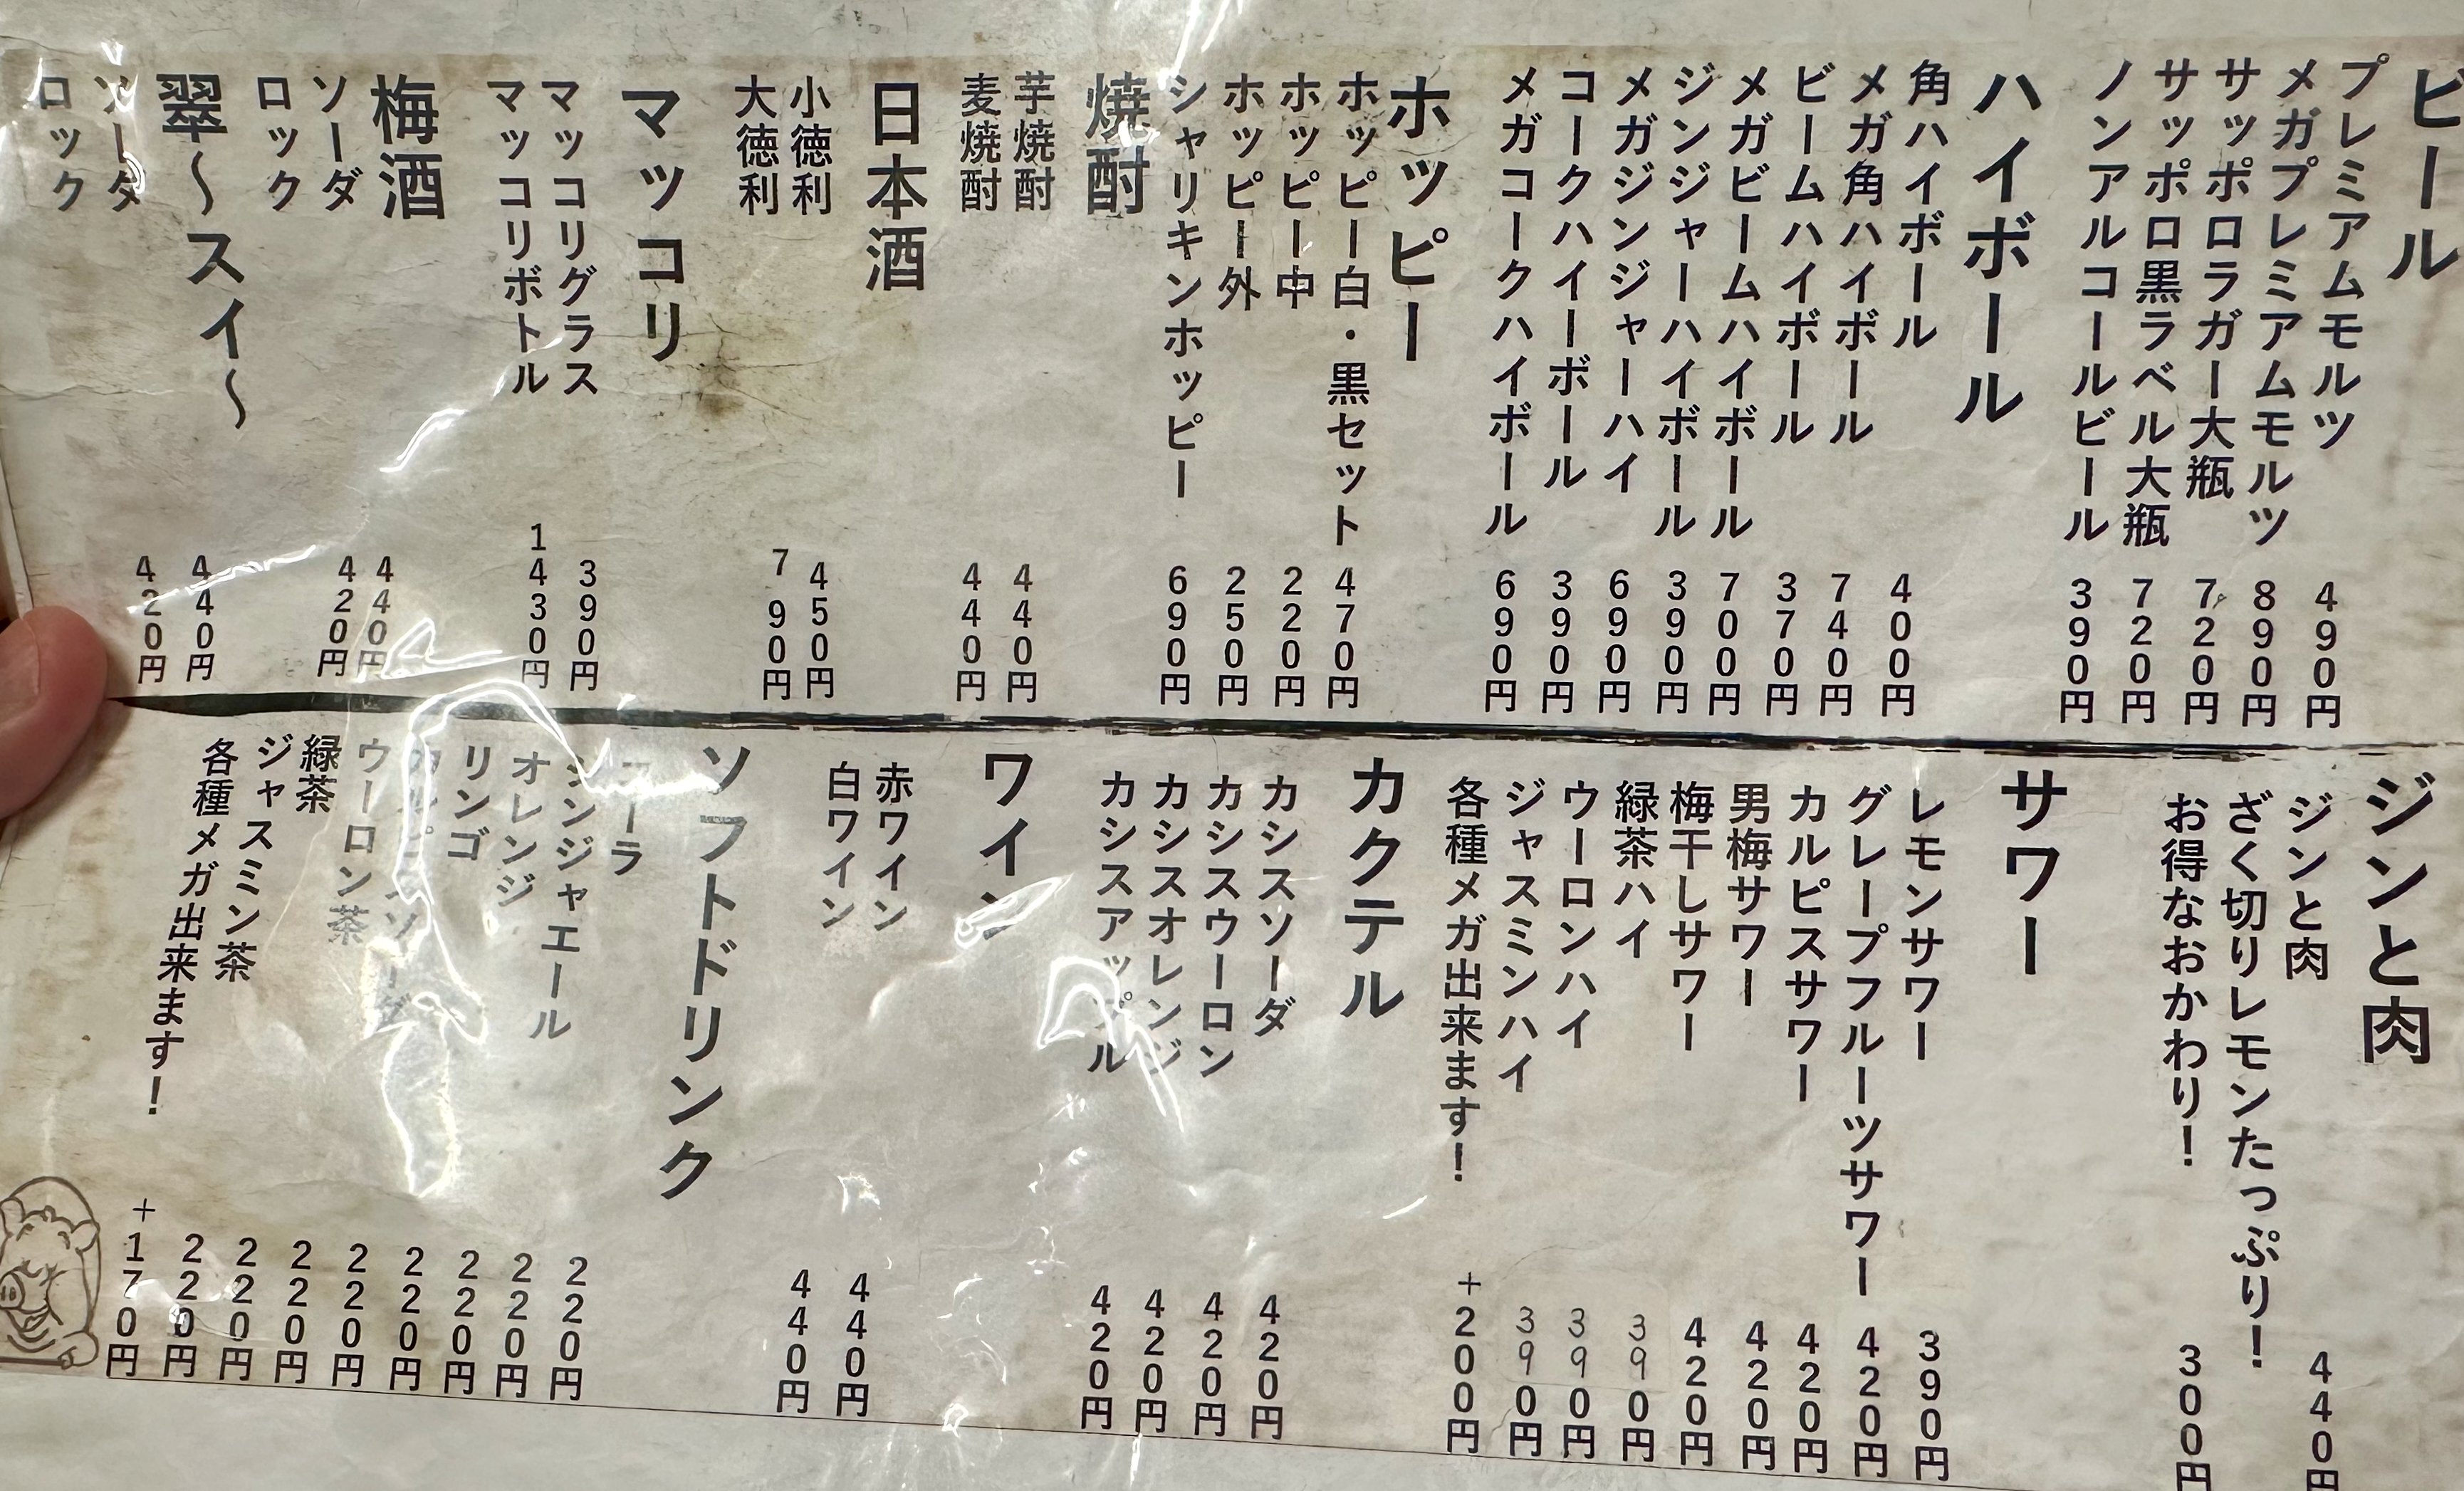 ビール
プレミアムモルツ 490円
メガプレミアムモルツ 890円
サッポロラガー大瓶 720円
サッポロ黒ラベル大瓶 720円
ノンアルコールビール 390円
ハイボール
角ハイボール 400円
メガ角ハイボール 740円
ビームハイボール 370円
メガビームハイボール 700円
ジンジャーハイボール 390円
メガジンジャーハイ 690円
コークハイーボール 390円
メガコークハイボール 690円
ホッピー
ホッピー白・黒セット 470円
ホッピー中 220円
ホッピー外 250円
シャリキンホッピー 690円
焼酎
芋焼酎 440円
麦焼酎 440円
日本酒
小徳利 450円
大徳利 790円
マッコリ
マッコリグラス 390円
マッコリボトル 1430円
梅酒
ソーダ 440円
ロック 420円
翠〜スイ〜
ソーダ 440円
ロック 420円
ジンと肉
ジンと肉 440円
ざく切りレモンたっぷり!
お得なおかわり! 300円
サワー
レモンサワー 390円
グレープフルーツサワー 420円
カルピスサワー 420円
男梅サワー 420円
梅干しサワー 420円
緑茶ハイ 390円
ウーロンハイ 390円
ジャスミンハイ 390円
各種メガ出来ます! +200円
カクテル
カシスソーダ 420円
カシスウーロン 420円
カシスオレンジ 420円
カシスアップル 420円
ワイン
赤ワイン 440円
白ワイン 440円
ソフトドリンク
コーラ 220円
ジンジャエール 220円
オレンジ 220円
リンゴ 220円
カルピスソーダ 220円
ウーロン茶 220円
緑茶 220円
ジャスミン茶 220円
各種メガ出来ます! +170円